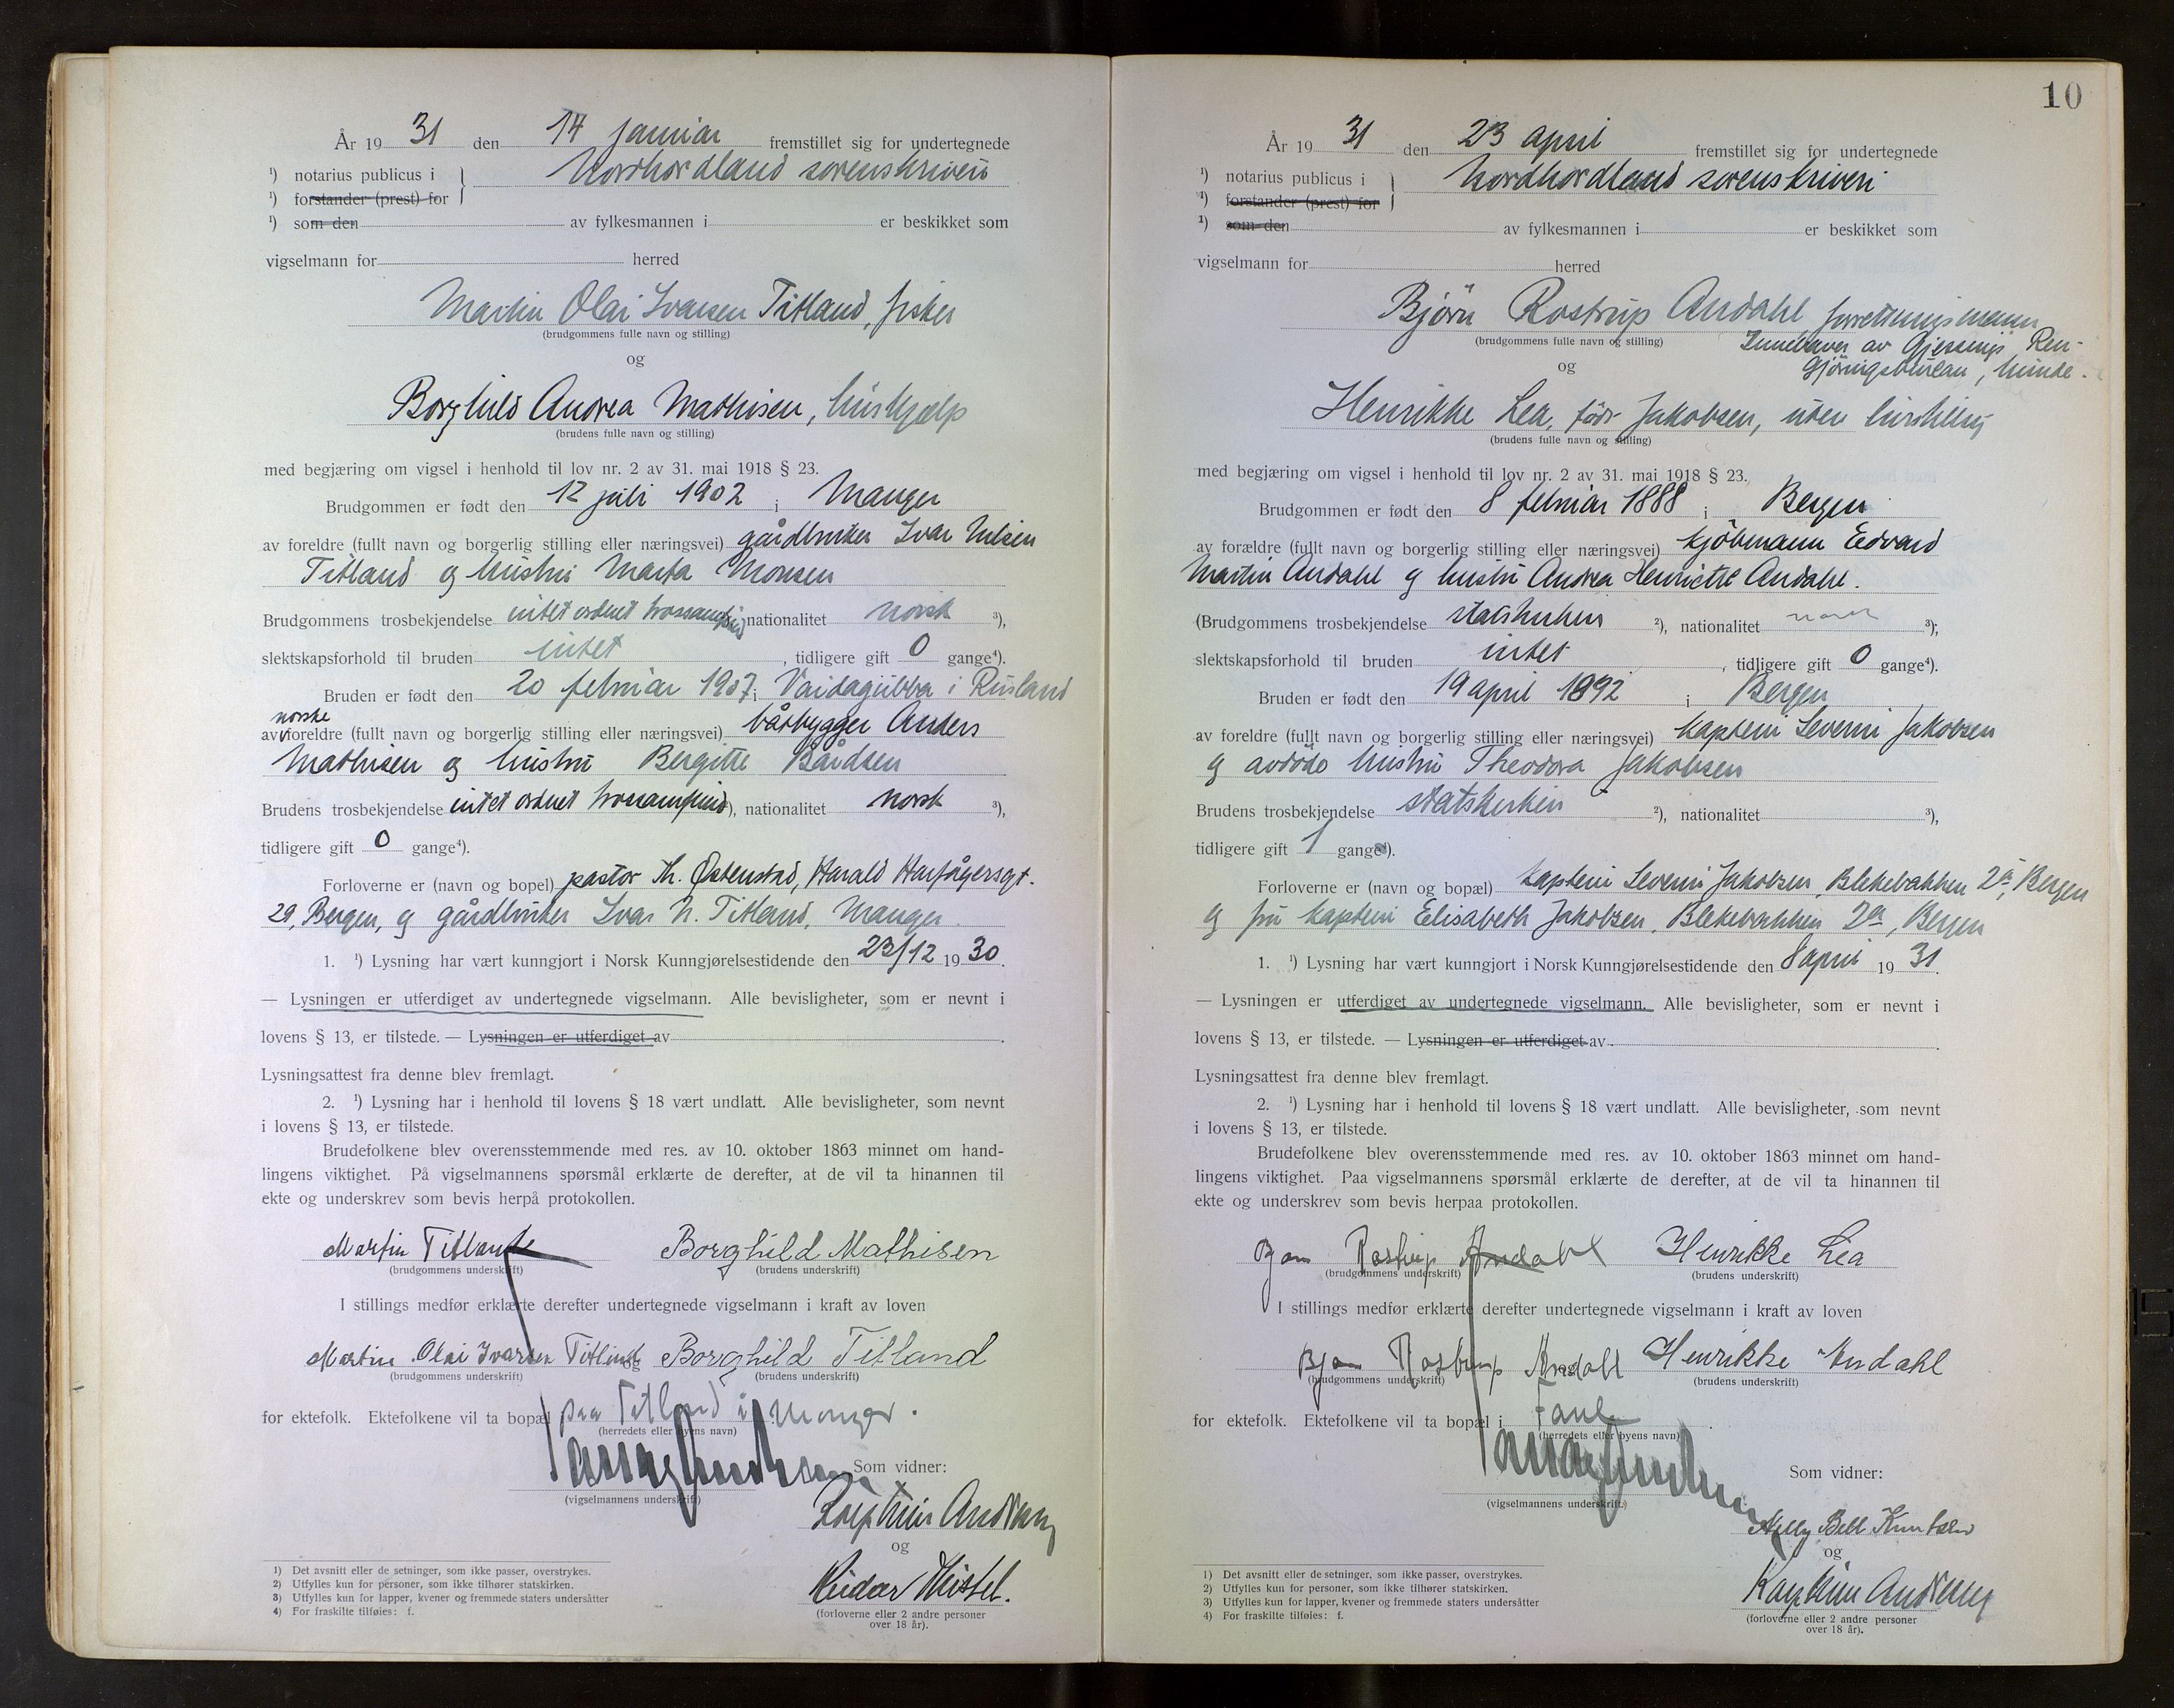 År 19 31 den 14 januar fremstillet sig for undertegnede
¹) notarius publicus i } Nordhordland sorenskriveri
¹) forstander (prest) for
¹) som den av fylkesmannen i er beskikket som
vigselmann for herred
Martin Olai Ivarsen Titland, fisker
(brudgommens fulle navn og stilling)
og
Borghild Andrea Mathisen, hushjelp
(brudens fulle navn og stilling)
med begjæring om vigsel i henhold til lov nr. 2 av 31. mai 1918 § 23.
Brudgommen er født den 12 juli 1902 i Manger
av foreldre (fullt navn og borgerlig stilling eller næringsvei) gårdbruker Ivar Nilsen
Titland og hustru Marta Monsen
Brudgommens trosbekjendelse intet ordnet trossamfund, nationalitet norsk ³),
slektskapsforhold til bruden intet, tidligere gift 0 gange⁴).
Bruden er født den 20 februar 1907 i Vaidagubba i Rusland
norske
av foreldre (fullt navn og borgerlig stilling eller næringsvei) båtbygger Anders
Mathisen og hustru Bergitte Bårdsen
Brudens trosbekjendelse intet ordnet trossamfund), nationalitet norsk ³),
tidligere gift 0 gange⁴).
Forloverne er (navn og bopel) pastor Th. Østenstad, Harald Harfagersgt.
29, Bergen, og gårdbruker Ivar N. Titland, Manger
1. ¹) Lysning har vært kunngjort i Norsk Kunngjørelsestidende den 23/12 19 30.
— Lysningen er utferdiget av undertegnede vigselmann. Alle bevisligheter, som er nevnt i
lovens § 13, er tilstede. — Lysningen er utferdiget av .
Lysningsattest fra denne blev fremlagt.
2. ¹) Lysning har i henhold til lovens § 18 vært undlatt. Alle bevisligheter, som nevnt
i lovens § 13, er tilstede.
Brudefolkene blev overensstemmende med res. av 10. oktober 1863 minnet om hand-
lingens viktighet. På vigselmannens spørsmål erklærte de derefter, at de vil ta hinannen til
ekte og underskrev som bevis herpå protokollen.
Martin Titland Borghild Mathisen
(brudgommens underskrift) (brudens underskrift)
I stillings medfør erklærte derefter undertegnede vigselmann i kraft av loven
Martin Olai Ivarsen Titland og Borghild Titland
(brudgommens underskrift) (brudens underskrift)
for ektefolk. Ektefolkene vil ta bopæl paa Titland i Manger.
(herredets eller byens navn)
Som vidner:
(vigselmannens underskrift)
og
(forloverne eller 2 andre personer
over 18 år).
1) Det avsnitt eller de setninger, som ikke passer, overstrykes.
2) Utfylles kun for personer, som ikke tilhører statskirken.
3) Utfylles kun for lapper, kvener og fremmede staters undersåtter
4) For fraskilte tilføies: f.
10
År 19 31 den 23 april fremstillet sig for undertegnede
¹) notarius publicus i } Nordhordland sorenskriveri
¹) forstander (prest) for
¹) som den av fylkesmannen i er beskikket som
vigselmann for herred
Bjørn Rostrup Andahl forretningsmann
(brudgommens fulle navn og stilling) Innehaver av Gjessings Ren-
og gjøringsbureau, Minde.
Henrikke Lea, født Jakobsen, uten
(brudens fulle navn og stilling)
med begjæring om vigsel i henhold til lov nr. 2 av 31. mai 1918 § 23.
Brudgommen er født den 8 februar 1888 i Bergen
av forældre (fullt navn og borgerlig stilling eller næringsvei) kjøbmann Edvard
Martin Andahl og hustru Andrea Henriette Andahl.
(Brudgommens trosbekjendelse statskirken ²), nationalitet norsk ³);
slektskapsforhold til bruden intet, tidligere gift 0 gange⁴).
Bruden er født den 19 april 1892 i Bergen
av foreldre (fullt navn og borgerlig stilling eller næringsvei) kaptein Severin Jakobsen
og avdøde hustru Theodora Jakobsen
Brudens trosbekjendelse statskirken ²), nationalitet ³),
tidligere gift 1 gange⁴).
Forloverne er (navn og bopæl) kaptein Severin Jakobsen, Blekebakken 2a, Bergen
og fru kaptein Elisabeth Jakobsen, Blekebakken 2a, Bergen
1. ¹) Lysning har vært kunngjort i Norsk Kunngjørelsestidende den 8 april 19 31.
— Lysningen er utferdiget av undertegnede vigselmann. Alle bevisligheter, som er nevnt i
lovens § 13, er tilstede. — Lysningen er utferdiget av .
Lysningsattest fra denne blev fremlagt.
2. ¹) Lysning har i henhold til lovens § 18 vært undlatt. Alle bevisligheter, som nevnt
i lovens § 13, er tilstede.
Brudefolkene blev overensstemmende med res. av 10. oktober 1863 minnet om hand-
lingens viktighet. Paa vigselmannens spørsmål erklærte de derefter, at de vil ta hinannen til
ekte og underskrev som bevis herpaa protokollen.
Bjørn Rostrup Andahl Henrikke Lea
(brudgommens underskrift) (brudens underskrift)
I stillings medfør erklærte derefter undertegnede vigselmann i kraft av loven
Bjørn Rostrup Andahl og Henrikke Andahl
(brudgommens underskrift) (brudens underskrift)
for ektefolk. Ektefolkene vil ta bopæl i Fane.
(herredets eller byens navn)
Som vidner:
(vigselmannens underskrift.)
Nelly Bell Knutsen
og
(forloverne eller 2 andre personer
over 18 år).
1) Det avsnitt eller de setninger, som ikke passer, overstrykes.
2) Utfylles kun for personer, som ikke tilhører statskirken.
3) Utfylles kun for lapper, kvener og fremmede staters undersåtter
4) For fraskilte tilføies: f.